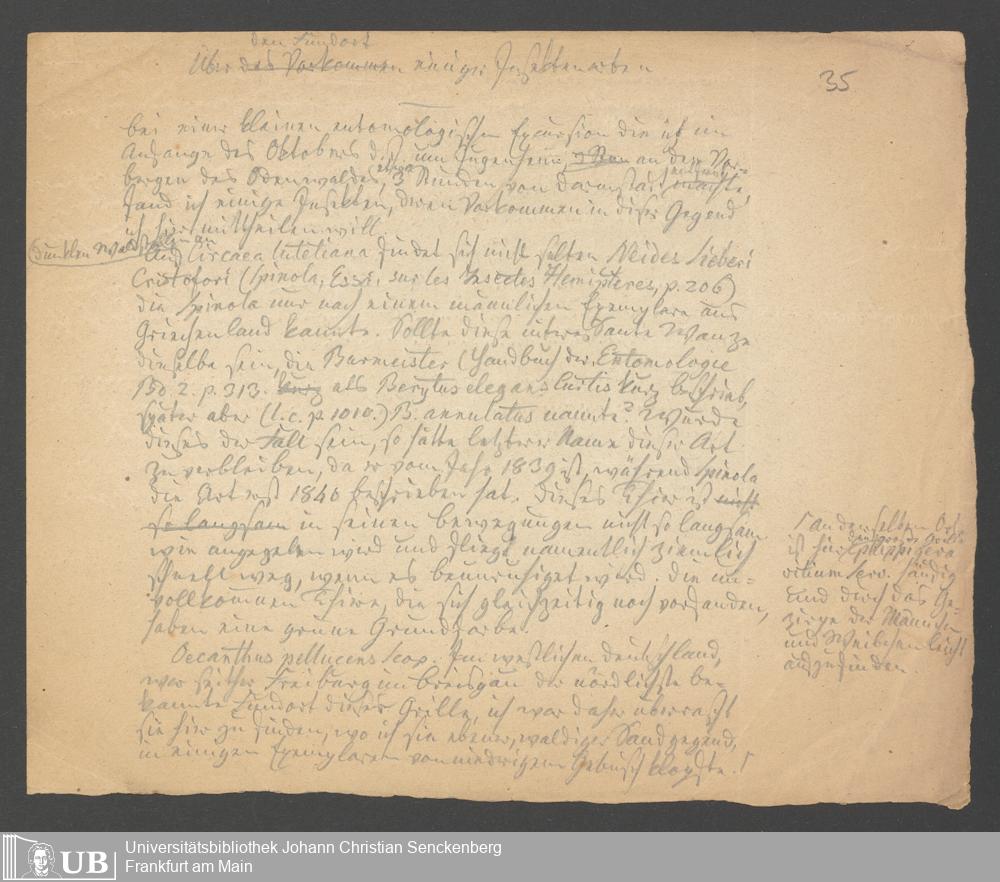 den Fundort
Über das Vorkommen einiger Insektenarten
35
bei einer kleinen entomologischen Excursion die ich im
Anfange des Oktobers d. J. um Jugenheim an den Vor-
bergen des Odenwaldes, etwa 3 Stunden von Darmstadt machte,
fand ich einige Insekten, deren Vorkommen in dieser Gegend
ich hier mittheilen will.
dunklen Waldstellen an
Auf Circaea lutetiana findet sich nicht selten Neides Sieberi
Cristofori (Spinola, Essai sur les Insectes Hemipteres, p. 206)
die Spinola nur nach einem männlichen Exemplare aus
Griechenland kannte. Sollte diese interessante Wanze
dieselbe sein, die Burmeister (Handbuch der Entomologie
Bd. 2. p. 313. kurz als Berytus elegans Curtis kurz beschrieb,
später aber (l. c. p. 1010.) B. annulatus nannte? Würde
dieses der Fall sein, so hätte letzterer Name dieser Art
zu verbleiben, da er vom Jahr 1839 ist, während Spinola
die Art erst 1840 beschrieben hat. Dieses Thier ist nicht
so langsam in seinen Bewegungen nicht so langsam
wie angegeben wird und fliegt namentlich ziemlich
schnell weg, wenn es beunruhigt wird. Die un-
vollkommnen Thiere, die sich gleichzeitig noch vorfanden,
haben eine grüne Grundfarbe.
Oecanthus pellucens Scop. Im westlichen Deutschland,
war seither Freiburg im Breisgau der nördlichste be-
kannte Fundort dieser Grille, ich war daher überrascht
sie hier zu finden, wo ich sie in ebener, waldiger Sandgegend,
in einigen Exemplaren von niedrigem Gebüsch klopfte.
an derselben Orte
ist hier die grosse Grille
Ephippigera
vitium Serv. häufig
und durch das Ge-
zirpe der Männchen
und Weibchen leicht
aufzufinden
Universitätsbibliothek Johann Christian Senckenberg
UB Frankfurt am Main